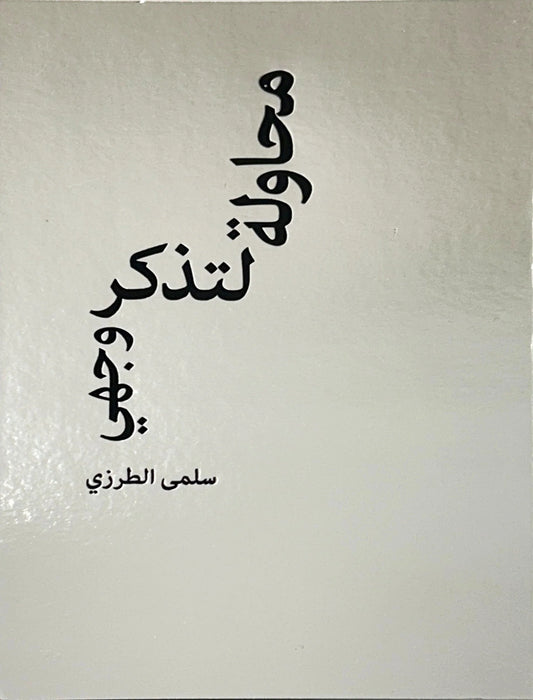 محاولة
لتذكر
وجهي
سلمى الطرزي